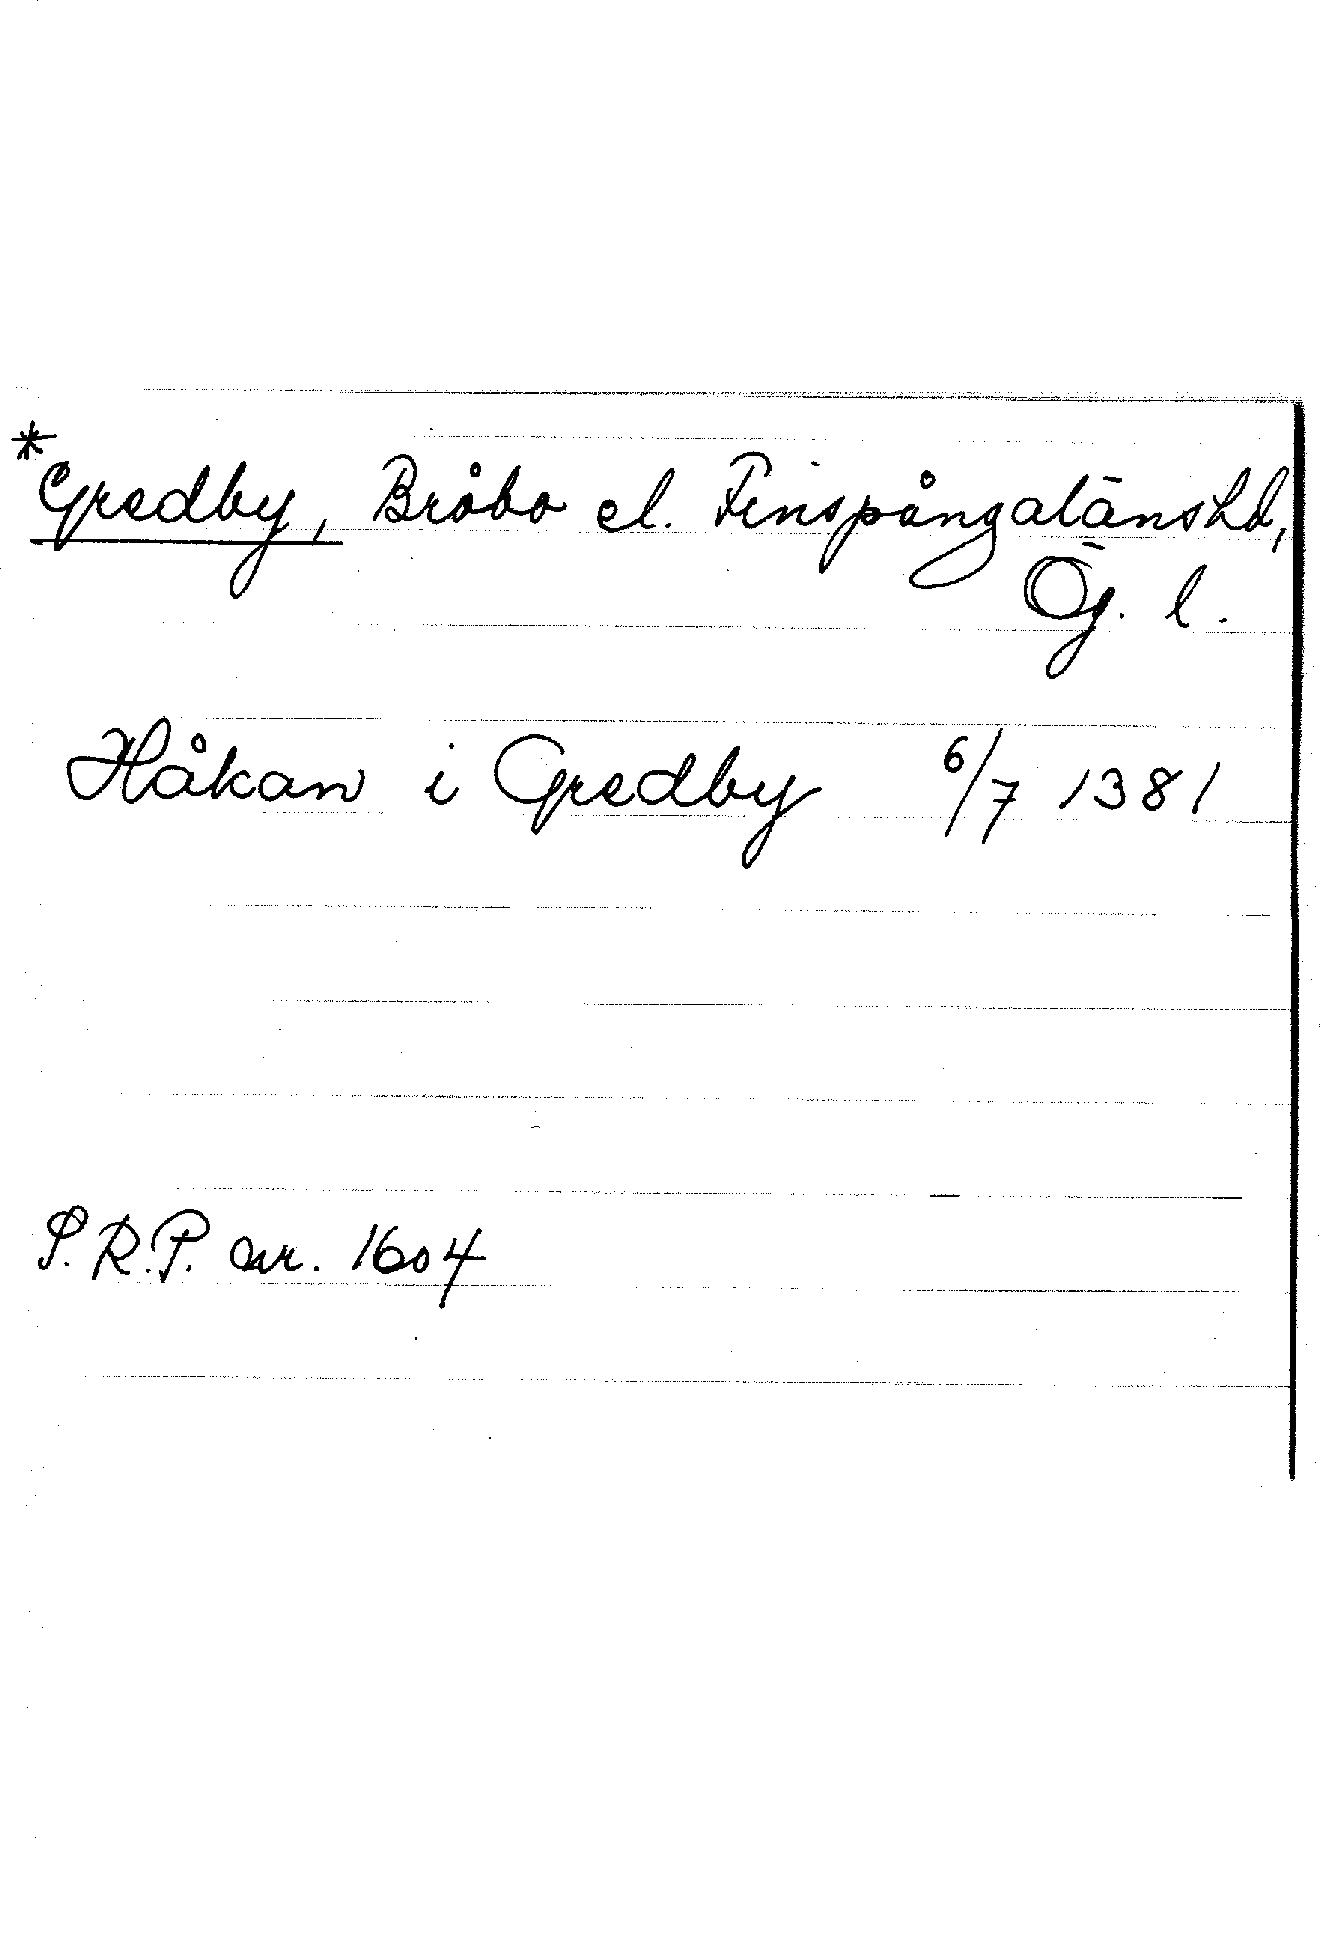 *Gredby, Bråbo el. Finspångalänshd,
Ög. l.
Håkan i Gredby 6/7 1381
S.R.P. nr. 1604